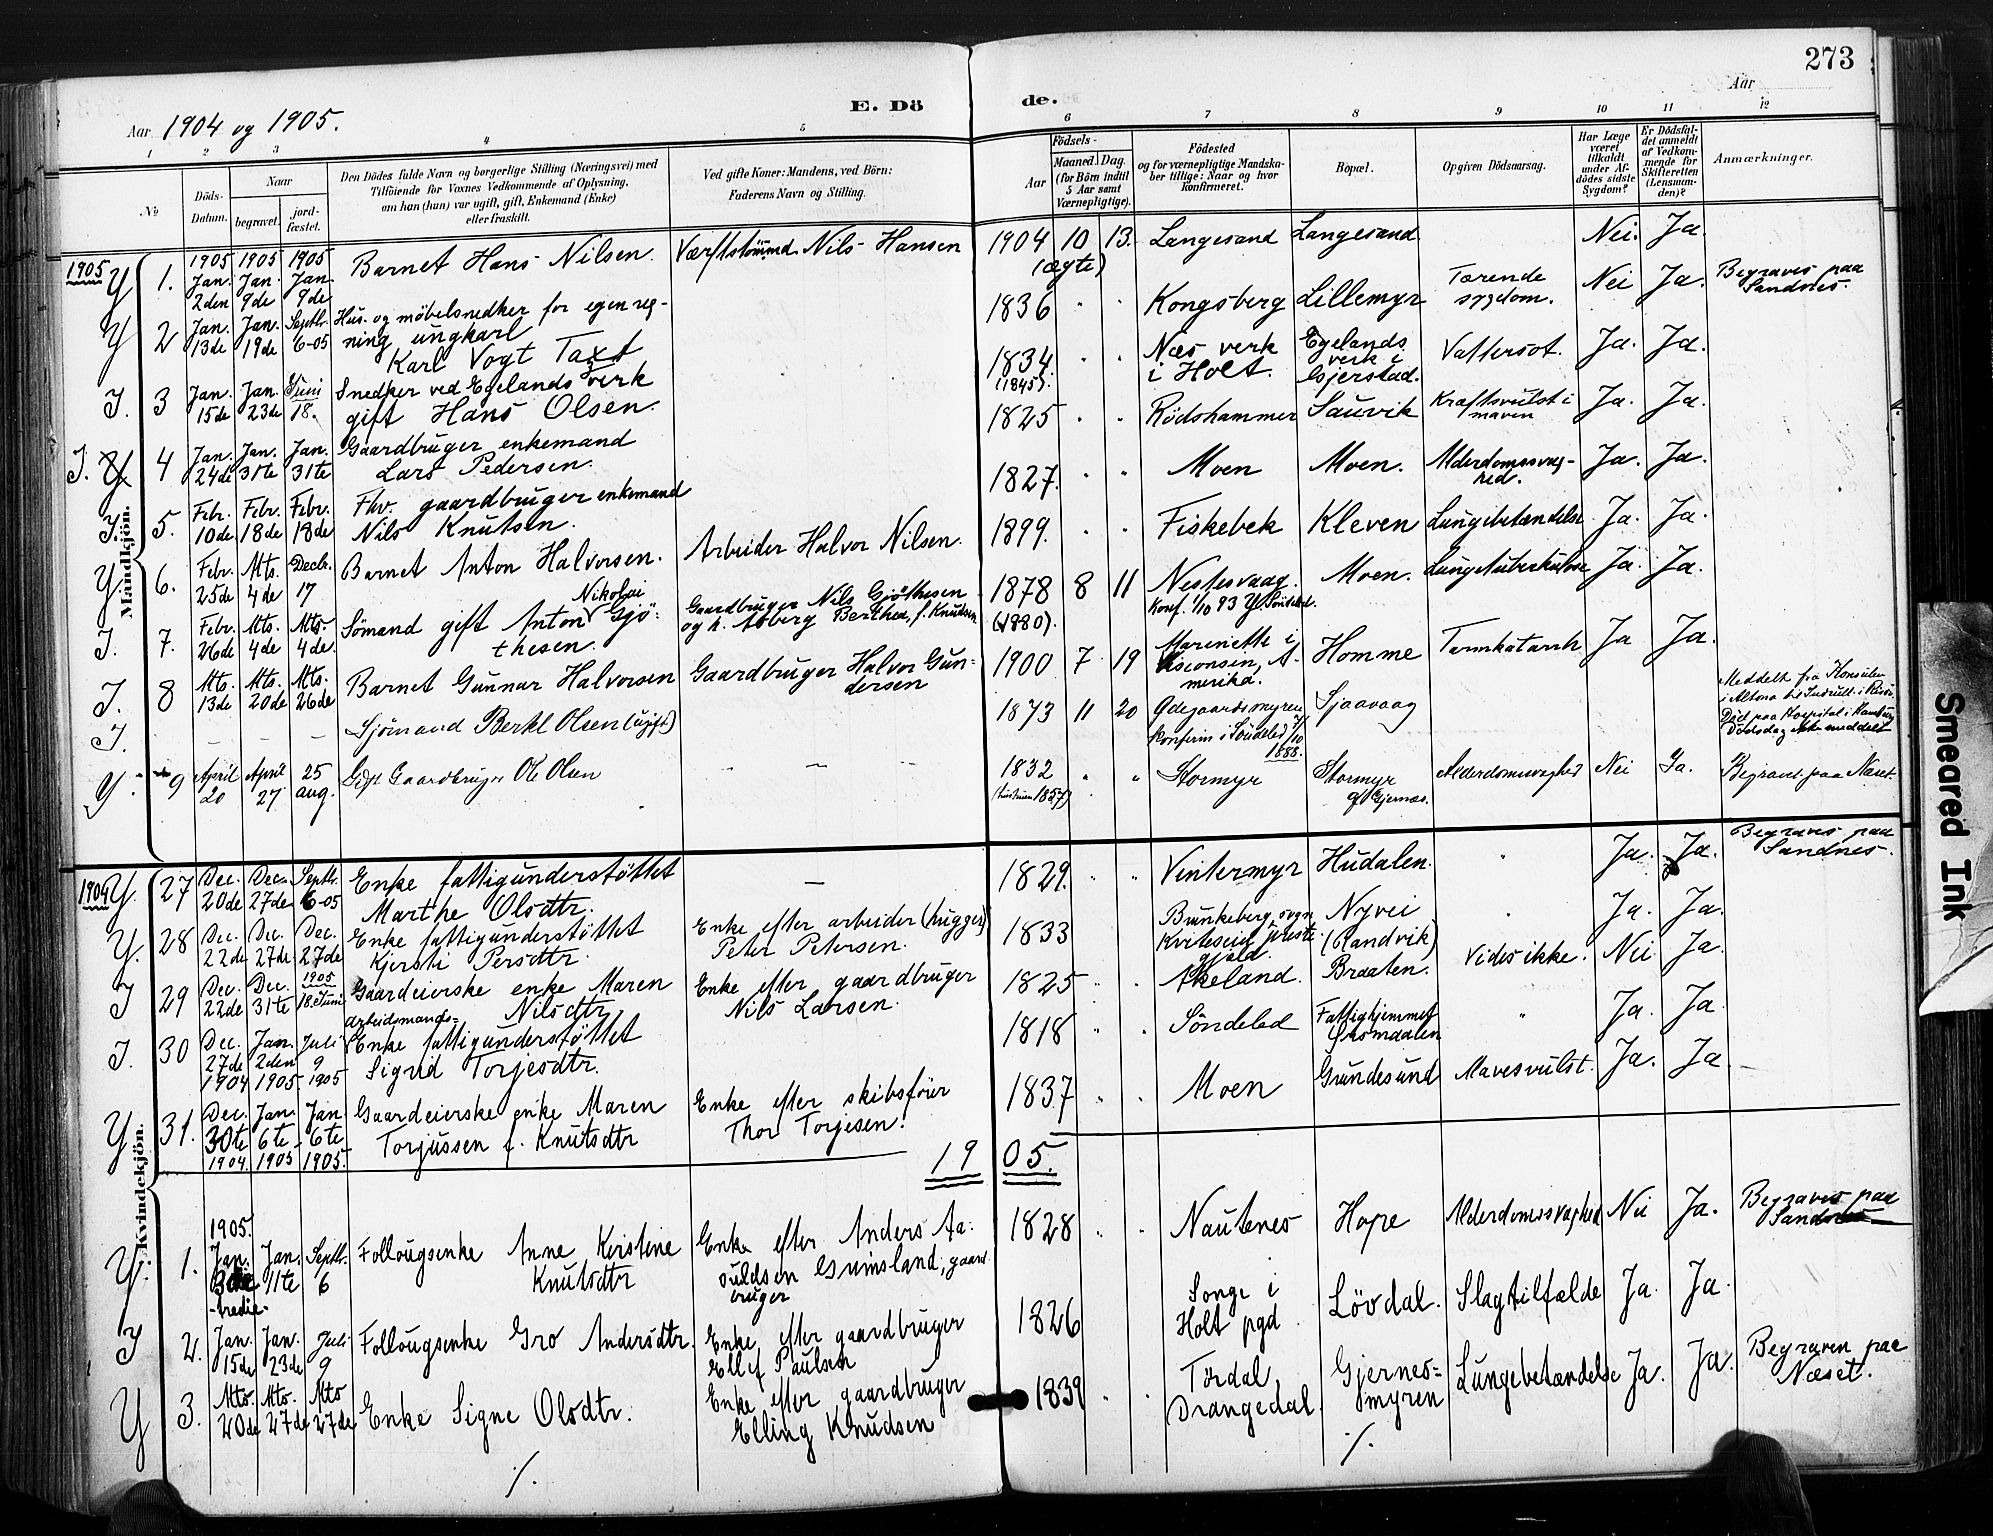 273
Aar 1904 og 1905.
E. Dö de.
Aar
1 2 3 4 5 6 7 8 9 10 11 12
No
Döds-Datum.
Naar
begravet.
jord-fæstet.
Den Dödes fulde Navn og borgerlige Stilling (Næringsvei) med
Tilföiende for Voxnes Vedkommende af Oplysning,
om han (hun) var ugift, gift, Enkemand (Enke)
eller fraskilt.
Ved gifte Koner: Mandens, ved Börn:
Faderens Navn og Stilling.
Födsels-
Aar
Maaned. Dag.
(for Börn indtil
5 Aar samt
Værnepligtige).
Födested
og for værnepligtige Mandska-
ber tillige: Naar og hvor
konfirmeret.
Bopæl.
Opgiven Dödsaarsag.
Har Læge
været
tilkaldt
under Af-
dödes sidste
Sygdom?
Er Dödsfal-
det anmeldt
af Vedkom-
mende for
Skifteretten
(Lensman-
den)?
Anmærkninger.
Mandkjön.
1905 Y 1. 1905 Jan. 2den 1905 Jan. 9de 1905 Jan. 9de Barnet Hans Nilsen. Værftstömmd. Nils Hansen 1904 10 13. (ægte) Langesand Langesand. Nei. Ja
Y 2 Jan. 13de Jan. 19de Septbr. 6-05 Hus- og möbelsnedker for egen reg-
ning ungkarl
Karl Vogt Taxt 1836 Kongsberg Lillemyr Tærende
sygdom. Nei Ja. Begraves paa
Sandnes.
I. 3 Jan. 15de Jan. 23de Juni 18. Snedker ved Egelands verk
gift Hans Olsen. 1834. (1845). Næs verk
i Holt. Egelands
verk i
Gjerstad. Vattersot. Ja. Ja.
I. Y 4 Jan. 24de Jan. 31te Jan. 31te Gaardbruger enkemand
Lars Pedersen. 1825 Rödshammer Sauvik Kraftsvulst i
maven Ja. Ja.
I. 5. Febr. 10de Febr. 18de Febr. 18de Fhv. gaardbruger enkemand
Nils Knutsen. 1827. Moen Moen. Alderdomssvag-
hed. Ja. Ja.
Y 6. Febr. 25de Mts. 4de Decbr. 17 Barnet Anton Halvorsen. Arbeider Halvor Nilsen. 1899. Fiskebek Kleven Lungebetændelse Ja. Ja.
I. 7. Febr. 26de Mts. 4de Mts. 4de. Sömand gift Anton Nikolai Gjö-
thesen. Gaardbruger Nils Gjöthesen
og h. Asberg Berthea, f. Knutsen 1878 8 11 (1880). Nestesvaag.
Konf. 1/10 93 Moen. Lungetuberkulose Ja. Ja.
I. 8 Mts. 13de Mts. 20de Mts. 26de Barnet Gunnar Halvorsen Gaardbruger Halvor Gun-
dersen 1900 7 19 Marinette i
Wisconsin, A-
merika. Homme Tarmkatarrh Ja Ja.
I. – – – Sjömand Bertel Olsen (ugift) 1873 11 20 Ödegaardsmyren
konfirm i Söndeled /10
1888. Sjaavaag Meddelt fra Konsulen
i Altona
Död paa Hospital i Hamburg
Dödsdag ikke meddelt
Y. 9 April 20 April 27 25 aug. Gift Gaardbruger Ole Olsen – – 1832 Stormyr Stormyr
af Gjernæs. Alderdomssvaghed Nei Ja. Begravet paa Næset.
Kvindekjön.
1904 Y. 27 Dec. 20de Dec. 27de Septbr. 6-05 Enke fattigunderstöttet
Marthe Olsdtr. – 1829. Vintermyr Hudalen. " Ja. Ja. Begraves paa
Sandnes.
Y. 28 Dec. 22de Dec. 27de Dec. 27de Enke fattigunderstöttet
Kjersti Persdtr. Enke efter arbeider (hugger)
Peter Petersen. 1833 Brunkeberg sogn
Kviteseid præste-
gjeld. Nyvei
(Randvik) " Ja. Ja.
I 29 Dec. 22de Dec. 31te 1905 18. Juni Gaardeierske enke Maren
Nilsdtr. Enke efter gaardbruger
Nils Larsen. 1825 Akeland. Braaten. Vides ikke. Nei Ja.
I. 30 Dec. 27de 1904 Jan. 2den 1905 Juli 9 1905 Arbeidsmands-
Enke fattigunderstöttet
Sigrid Torjesdtr. 1818 Söndeled Fattighjemmet " Ja. Ja
Y 31. Dec. 30te 1904. Jan. 6te 1905 Jan 6te 1905. Gaardeierske enke Maren
Torjussen f. Knutsdtr Enke efter skibsförer
Thor Torjesen. 1837 Moen Grundesund Mavesvulst. Ja. Ja
1905.
Y. 1. 1905. Jan. 3die -tredie- Jan. 11te Septbr. 6 Follougsenke Anne Kristine
Knutsdtr Enke efter Anders Aa-
suldsen Grimsland, gaard-
bruger 1828 Nautenes Hope Alderdomssvaghed Nei Ja. Begraves paa
Sandnes
I 2. Jan. 15de Jan. 23de Juli 9 Follougsenke Gro Andersdtr. Enke efter gaardbruger
Ellef Paulsen 1826 Songe i
Holt pgd. Lövdal. Slagtilfælde Ja. Ja.
Y 3. Mts. 20de Mts. 27de Mts 27de Enke Signe Olsdtr. Enke efter gaardbruger
Elling Knudsen 1839 Tördal,
Drangedal. Gjernes-
myren Lungebetændelse Ja. Ja. Begraven paa
Næset.
./. ./.
Smeared Ink